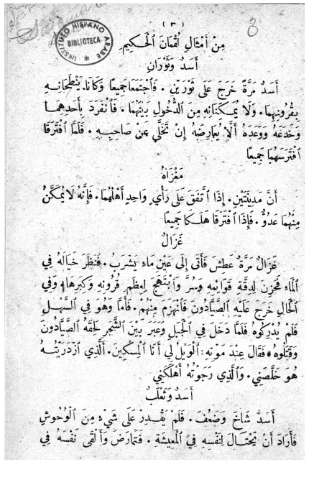 (٣)
3
INSTITUTO HISPANO ARABE
BIBLIOTECA
مِنْ أَمْثَالِ لُقْمَانَ الْحَكِيمِ
أَسَدٌ وَثَوْرَانِ
أَسَدٌ مَرَّةً خَرَجَ عَلَى ثَوْرَيْنِ ۰ فَاجْتَمَعَا جَمِيعًا وَكَانَا يَنْطَحَانِهِ
بِقُرُونِهِمَا ۰ وَلَا يُمَكِّنَانِهِ مِنَ الدُّخُولِ بَيْنَهُمَا ۰ فَانْفَرَدَ بِأَحَدِهِمَا
وَخَدَعَهُ وَوَعَدَهُ أَلَّا يُعَارِضَهُ إِنْ تَخَلَّى عَنْ صَاحِبِهِ ۰ فَلَمَّا افْتَرَقَا
افْتَرَسَهُمَا جَمِيعًا
مَغْزَاهُ
أَنَّ مَدِينَتَيْنِ ۰ إِذَا اتَّفَقَ عَلَى رَأْيٍ وَاحِدٍ أَهْلُهُمَا ۰ فَإِنَّهُ لَا يُمَكَّنُ
مِنْهُمَا عَدُوٌّ ۰ فَإِذَا افْتَرَقَا هَلَكَا جَمِيعًا
غَزَالٌ
غَزَالٌ مَرَّةً عَطِشَ فَأَتَى إِلَى عَيْنِ مَاءٍ يَشْرَبُ ۰ فَنَظَرَ خَيَالَهُ فِي
الْمَاءِ فَحَزِنَ لِدِقَّةِ قَوَائِمِهِ وَسُرَّ وَابْتَهَجَ لِعِظَمِ قُرُونِهِ وَكِبَرِهَا ۰ وَفِي
الْحَالِ خَرَجَ عَلَيْهِ الصَّيَّادُونَ فَانْهَزَمَ مِنْهُمْ ۰ فَأَمَّا وَهُوَ فِي السَّهْلِ
فَلَمْ يُدْرِكُوهُ فَلَمَّا دَخَلَ فِي الْجَبَلِ وَعَبَرَ بَيْنَ الشَّجَرِ لَحِقَهُ الصَّيَّادُونَ
وَقَتَلُوهُ ۰ فَقَالَ عِنْدَ مَوْتِهِ ۰ الْوَيْلُ لِي أَنَا الْمِسْكِينُ ۰ الَّذِي ازْدَرَيْتُ بِهِ
هُوَ خَلَّصَنِي ۰ وَالَّذِي رَجَوْتُهُ أَهْلَكَنِي
أَسَدٌ وَثَعْلَبٌ
أَسَدٌ شَاخَ وَضَعُفَ ۰ فَلَمْ يَقْدِرْ عَلَى شَيْءٍ مِنَ الْوُحُوشِ
فَأَرَادَ أَنْ يَحْتَالَ لِنَفْسِهِ فِي الْمَعِيشَةِ ۰ فَتَمَارَضَ وَأَلْقَى نَفْسَهُ فِي